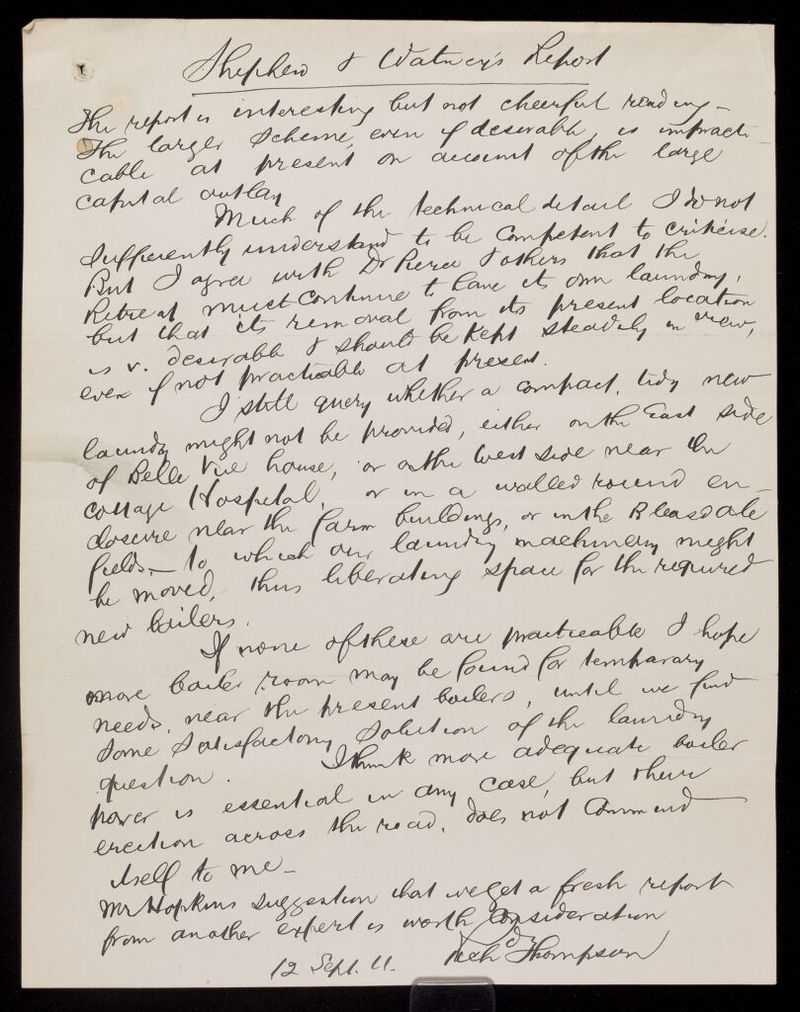 Shephen & Watney's Report
The report is interesting but not cheerful reading –
The larger scheme, even if desirable, is impracti-
cable at present on account of the large
capital outlay
Much of the technical detail I do not
sufficiently understand to be competent to criticise.
But I agree with Dr Pierce & others that the
Retreat must continue to have its own laundry,
but that its removal from its present location
is v. desirable & should be kept steadily in view,
even if not practicable at present.
I still query whether a compact, tidy new
laundry might not be provided, either on the East side
of Belle Vue house, or on the West side near the
cottage Hospital, or in a walled round en-
closure near the farm buildings, or in the Bleasdale
fields, – to which our laundry machinery might
be moved, – thus liberating space for the required
new boilers.
If none of these are practicable I hope
more boiler room may be found for temporary
needs, near the present boilers, until we find
some satisfactory solution of the laundry
question. I think more adequate boiler
power is essential in any case, but their
erection across the road, does not commend
itself to me –
Mr Hopkins suggestion that we get a fresh report
from another expert is worth consideration
12 Sept. 11. Thompson